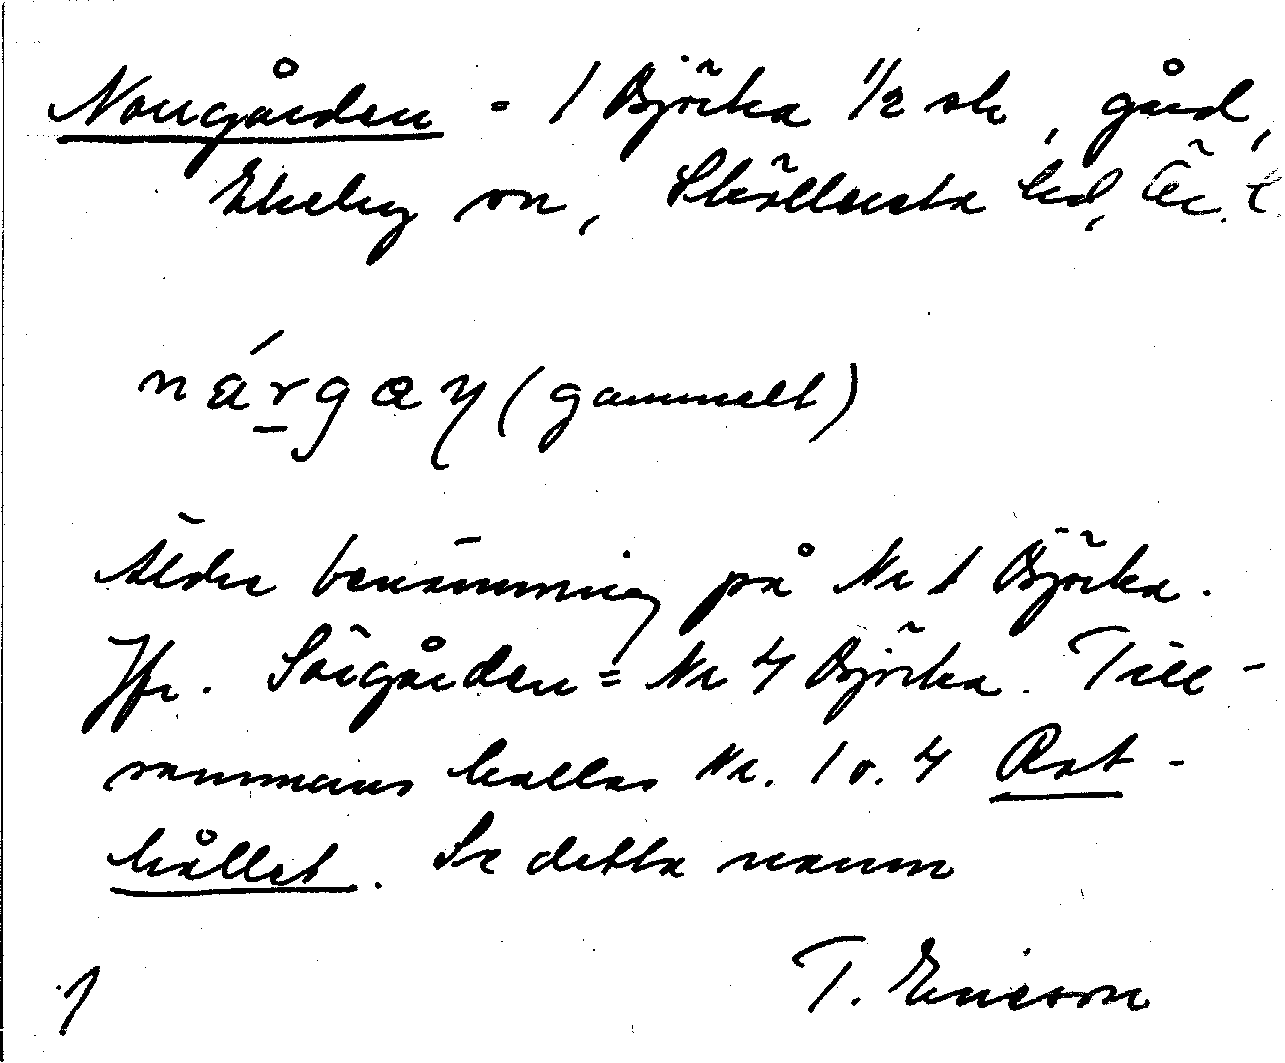 Norrgården = 1 Björka 1/2 sk, gård,
Ekeby sn, Sköllersta hd, Ör. l.
nárgaɳ (gammalt)
Äldre benämning på Nr 1 Björka.
Jfr. Sörgården = Nr 4 Björka. Till-
sammans kallas Nr. 1 o. 4 Rot-
hållet. Se detta namn
T. Ericson